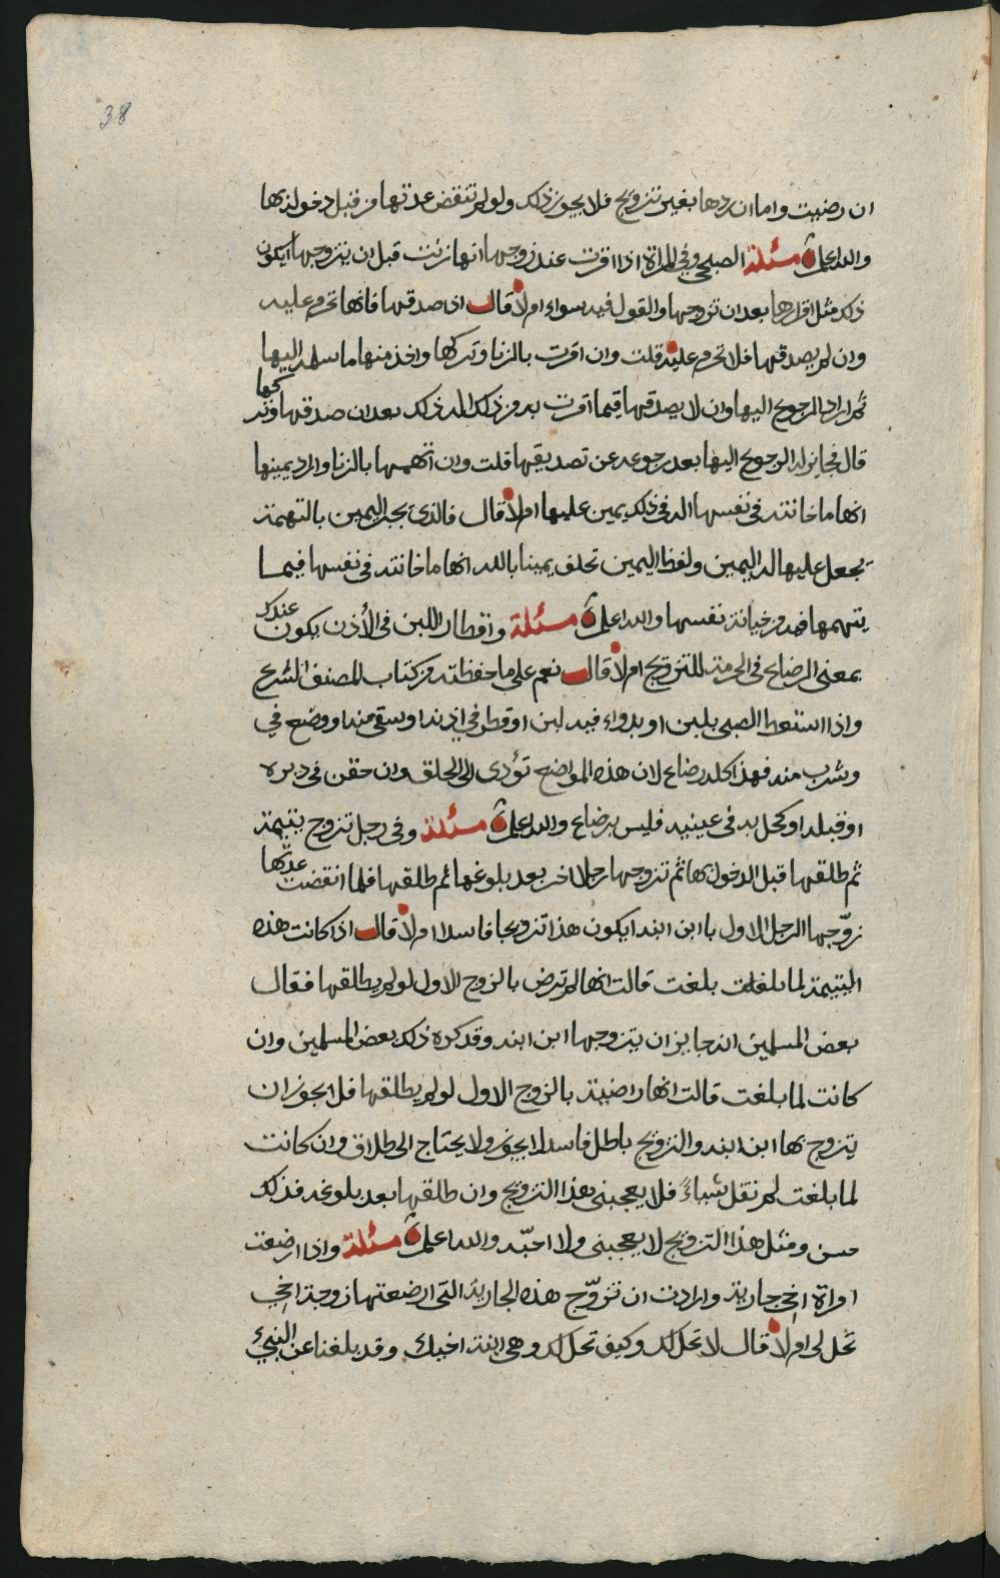 38
ان رضيت واما ان ردها بغير تزويج فلا يجوز ذلك ولو لم تنقض عدتها من قبل دخوله بها
والله اعلم مسئلة الصبحي وفي المراة اذا اقرت عند زوجها انها زنت قبل ان يتزوجها ايكون
ذلك مثل اقرارها بعد ان تزوجها والقول فيه سواء ام لا قال اذا صدقها فانها تحرم عليه
وان لم يصدقها فلا تحرم عليه قلت وان اقرت بالزنا وتركها واخذ منها ما سلمه اليها
ثم اراد الرجوع اليها وان لا يصدقها فيما اقرت به من ذلك اله ذلك بعد ان صدقها وتركها
قال فجايز له الرجوع اليها بعد رجوعه عن تصديقها قلت وان اتهمها بالزنا واراد يمينها
انها ما خانته في نفسها اله في ذلك يمين عليها ام لا قال فالذي يجبر اليمين بالتهمة
يجعل عليها له اليمين ولفظ اليمين تحلف يمينا بالله انها ما خانته في نفسها فيما
يتهمها فيه من خيانة نفسها والله اعلم مسئلة واقطار اللبن في الأذن يكون عندك
بمعنى الرضاع في الحرمة للتزويج ام لا قال نعم على ما حفظته من كتاب المصنف الشرع
واذا استعط الصبي بلبن او بدواء فيه لبن او قطر في اذنه او سقي منه او وضع في
وشرب منه فهذا كله رضاع لان هذه المواضع تؤدى الى الحلق وان حقن في دبره
او قبله او كحل به في عينيه فليس برضاع والله اعلم مسئلة وفي رجل تزوج يتيمة
ثم طلقها قبل الدخول بها ثم تزوجها رجلا اخر بعد بلوغها ثم طلقها فلما انقضت عدتها
زوّجها الرجل الاول باابن ابنه ايكون هذا تزويجا فاسدا ام لا قال اذا كانت هذه
اليتيمة لما بلغت بلغت قالت انها لم ترض بالزوج الاول لو لم يطلقها فقال
بعض المسلمين انه جايز ان يتزوجها ابن ابنه وقد كره ذلك بعض المسلمين وان
كانت لما بلغت قالت انها راضية بالزوج الاول لو لم يطلقها فلا يجوز ان
يتزوج بها ابن ابنه والتزويج باطل فاسد لا يجوز ولا يحتاج الى طلاق وان كانت
لما بلغت لم تقل شياءً فلا يعجبنى هذا التزويج وان طلقها بعد بلوغه فذلك
حسن ومثل هذا التزويج لا يعجبنى ولا احبّه والله اعلم مسئلة واذا ارضعت
امراة اخي جارية وارادت ان تزوّج هذه الجارية التى ارضعتها زوجة اخي
تحل لى ام لا قال لا تحل لك وكيف تحل لك وهى ابنة اخيك وقد بلغنا عن النبيء